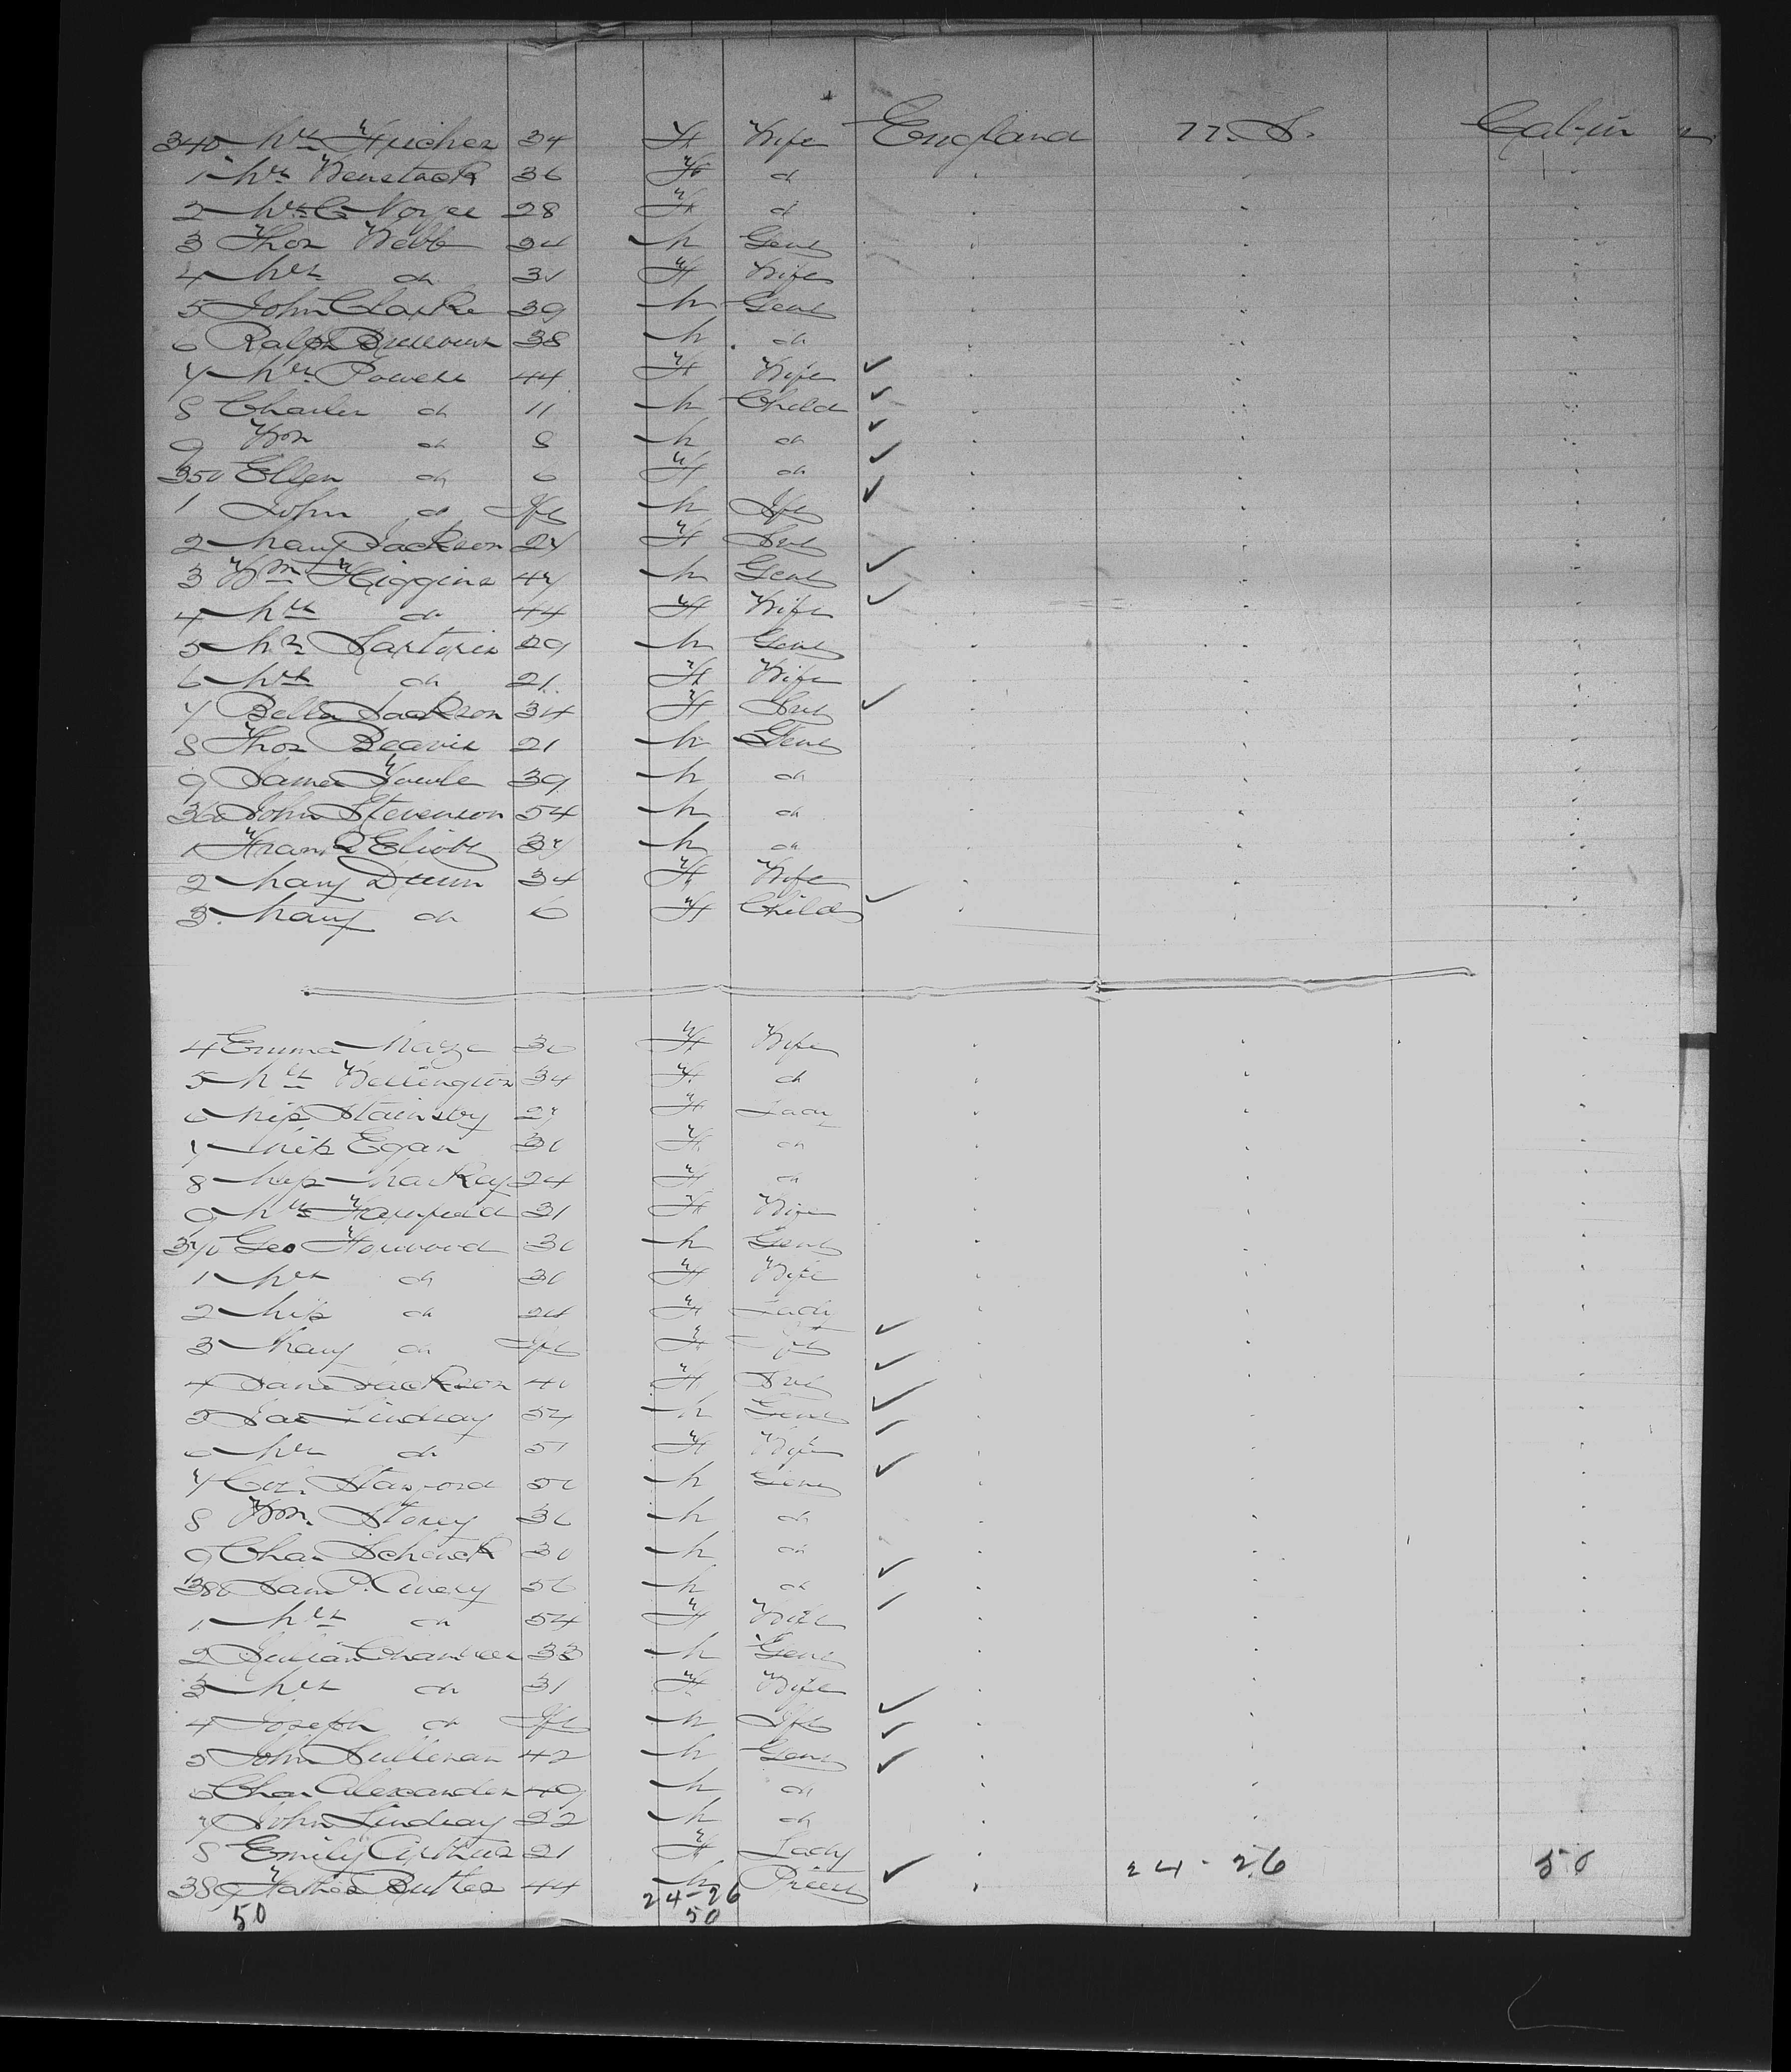 340 Mrs Hughes 34 F Wife England U.S. Cabin
1 Mrs 36 F do
2 Mrs C Noyce 28 F do
3 Thos Webb 34 M Gent
4 Mrs do 31 F Wife
5 John Clarke 39 M Gent
6 Ralph 38 M do
7 Mrs Powell 44 F Wife ✓
8 Charles do 11 M Child ✓
9 Wm do 8 M do ✓
350 Ellen do 6 F do ✓
1 John do Inft M Inft ✓
2 Mary Jackson 27 F Svt
3 Wm Higgins 47 M Gent ✓
4 Mrs do 44 F Wife ✓
5 Mr Sartoris 29 M Gent
6 Mrs do 21 F Wife
7 Bella Jackson 34 F Svt ✓
8 Thos Beavis 21 M Gent
9 James Towle 39 M do
360 John Stevenson 54 M do
1 Frank Eliott 37 M do
2 Mary Dunn 34 F Wife
3 Mary do 6 F Child ✓
4 Emma 30 F Wife
5 Mrs Wellington 34 F do
6 Miss Stainsby 27 F Lady
7 Miss Egan 30 F do
8 Miss MacKay 24 F do
9 Mrs 31 F Wife
370 Geo Horwood 30 M Gent
1 Mrs do 30 F Wife
2 Miss do 24 F Lady
3 Mary do Inft F Inft ✓
4 Jane Jackson 40 F Svt ✓
5 Jas Lindsay 54 M Gent ✓
6 Mrs do 51 F Wife ✓
7 Col. Stanford 50 M Gent ✓
8 Wm. Storey 36 M do
9 Chas Schenck 30 M do
380 Sam P. Avery 56 M do ✓
1 Mrs do 54 F Wife ✓
2 Julian Chandler 33 M Gent
3 Mrs do 31 F Wife
4 Joseph do Inft M Inft ✓
5 John Sullivan 42 M Gent ✓
6 Chas Alexander 49 M do ✓
7 John Lindsay 22 M do
8 Emily Arthur 21 F Lady
389 Father Butler 44 M Priest ✓ 24-26 50
50 24-26
50